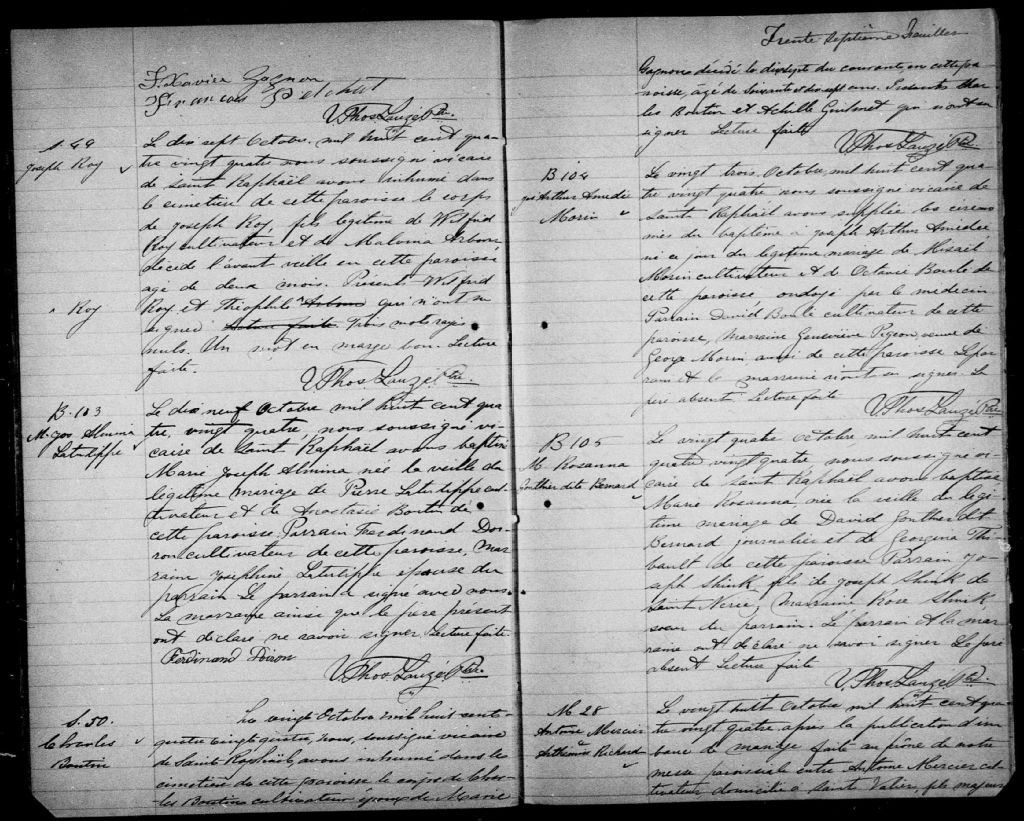 F. Xavier Gagnon
François Pelchat
V Phos Lauzé Ptre.
S. 49
Joseph Roy
Le dix sept Octobre, mil huit cent qua-
tre vingt quatre nous soussigné vicaire
de Saint Raphaël avons inhumé dans
le cimetière de cette paroisse le corps
de Joseph Roy, fils légitime de Wilfrid
Roy cultivateur et de Malvina
décédé l'avant veille en cette paroisse
agé de deux mois. Présents Wilfrid
Roy
Roy et Théophile qui n'ont su
signer. Lecture faite. Trois mots rayés
nuls. Un mot en marge bon. Lecture
faite.
V Phos Lauzé Ptre.
B. 103
M. Jos Almina
Latulippe
Le dix neuf Octobre mil huit cent qua
tre, vingt quatre, nous soussigné vi-
caire de Saint Raphaël avons baptisé
Marie Joseph Almina née la veille du
légitime mariage de Pierre Latulippe cul
tivateur et de Anastasie Boutin de
cette paroisse. Parrain Ferdinand Doi-
ron cultivateur de cette paroisse, mar
raine Josephine Latulippe épouse du
parrain. Le parrain a signé avec nous.
La marraine ainsi que le père présent
ont déclaré ne savoir signer. Lecture faite.
Ferdinand Doiron
V Phos Lauzé Ptre.
S. 50.
Charles
Boutin
Le vingt Octobre mil huit cent
quatre vingt quatre, nous, soussigné vicaire
de Saint Raphaël, avons inhumé dans le
cimetière de cette paroisse le corps de Char-
les Boutin cultivateur époux de Marie
Trente Septième Feuillet
Gagnon décédé le dix sept du courant en cette pa
roisse, agé de soixante et dix sept ans. Présents Char
les Boutin et Achille qui n'ont su
signer Lecture faite
V Phos Lauzé Ptre
B 104
Jos Arthur Amédé
Morin
Le vingt trois Octobre mil huit cent qua
tre vingt quatre nous soussigné vicaire de
Saint Raphaël avons supplée les céremo
nies du baptême à Joseph Arthur Amédée
né ce jour du légitime mariage de Misaël
Morin cultivateur et de Octavie Boulé de
cette paroisse, ondoyé par le medecin
Parrain David Boulé cultivateur de cette
paroisse, Marraine Geneviève Pigeon veuve de
George Morin aussi de cette paroisse Le par
rain et la marraine n'ont su signer. Le
père absent Lecture faite
V Phos Lauzé Ptre
B 105
M Rosanna
Gonthier dite Bernard
Le vingt quatre Octobre mil huit cent
quatre vingt quatre nous soussigné vi-
caire de Saint Raphaël avons baptisé
Marie Rosanna, née la veille du légi
time mariage de David Gonthier dit
Bernard journalier et de Georgina Thi
bault de cette paroisse Parrain Jo-
seph Shink fils de Joseph Shink de
Saint Nérée, Marraine Rose Shink,
soeur du parrain. Le parrain et la mar
raine ont déclaré ne savoir signer Le père
absent Lecture faite
V. Phos Lauzé Ptre
M 28
Antoine Mercier
Arthémise Richard
Le vingt huit Octobre mil huit cent qua
tre vingt quatre après la publication d'un
banc de mariage faite au prône de notre
messe paroissiale entre Antoine Mercier cul
tivateur domicilié à Saint Valier, fils majeur